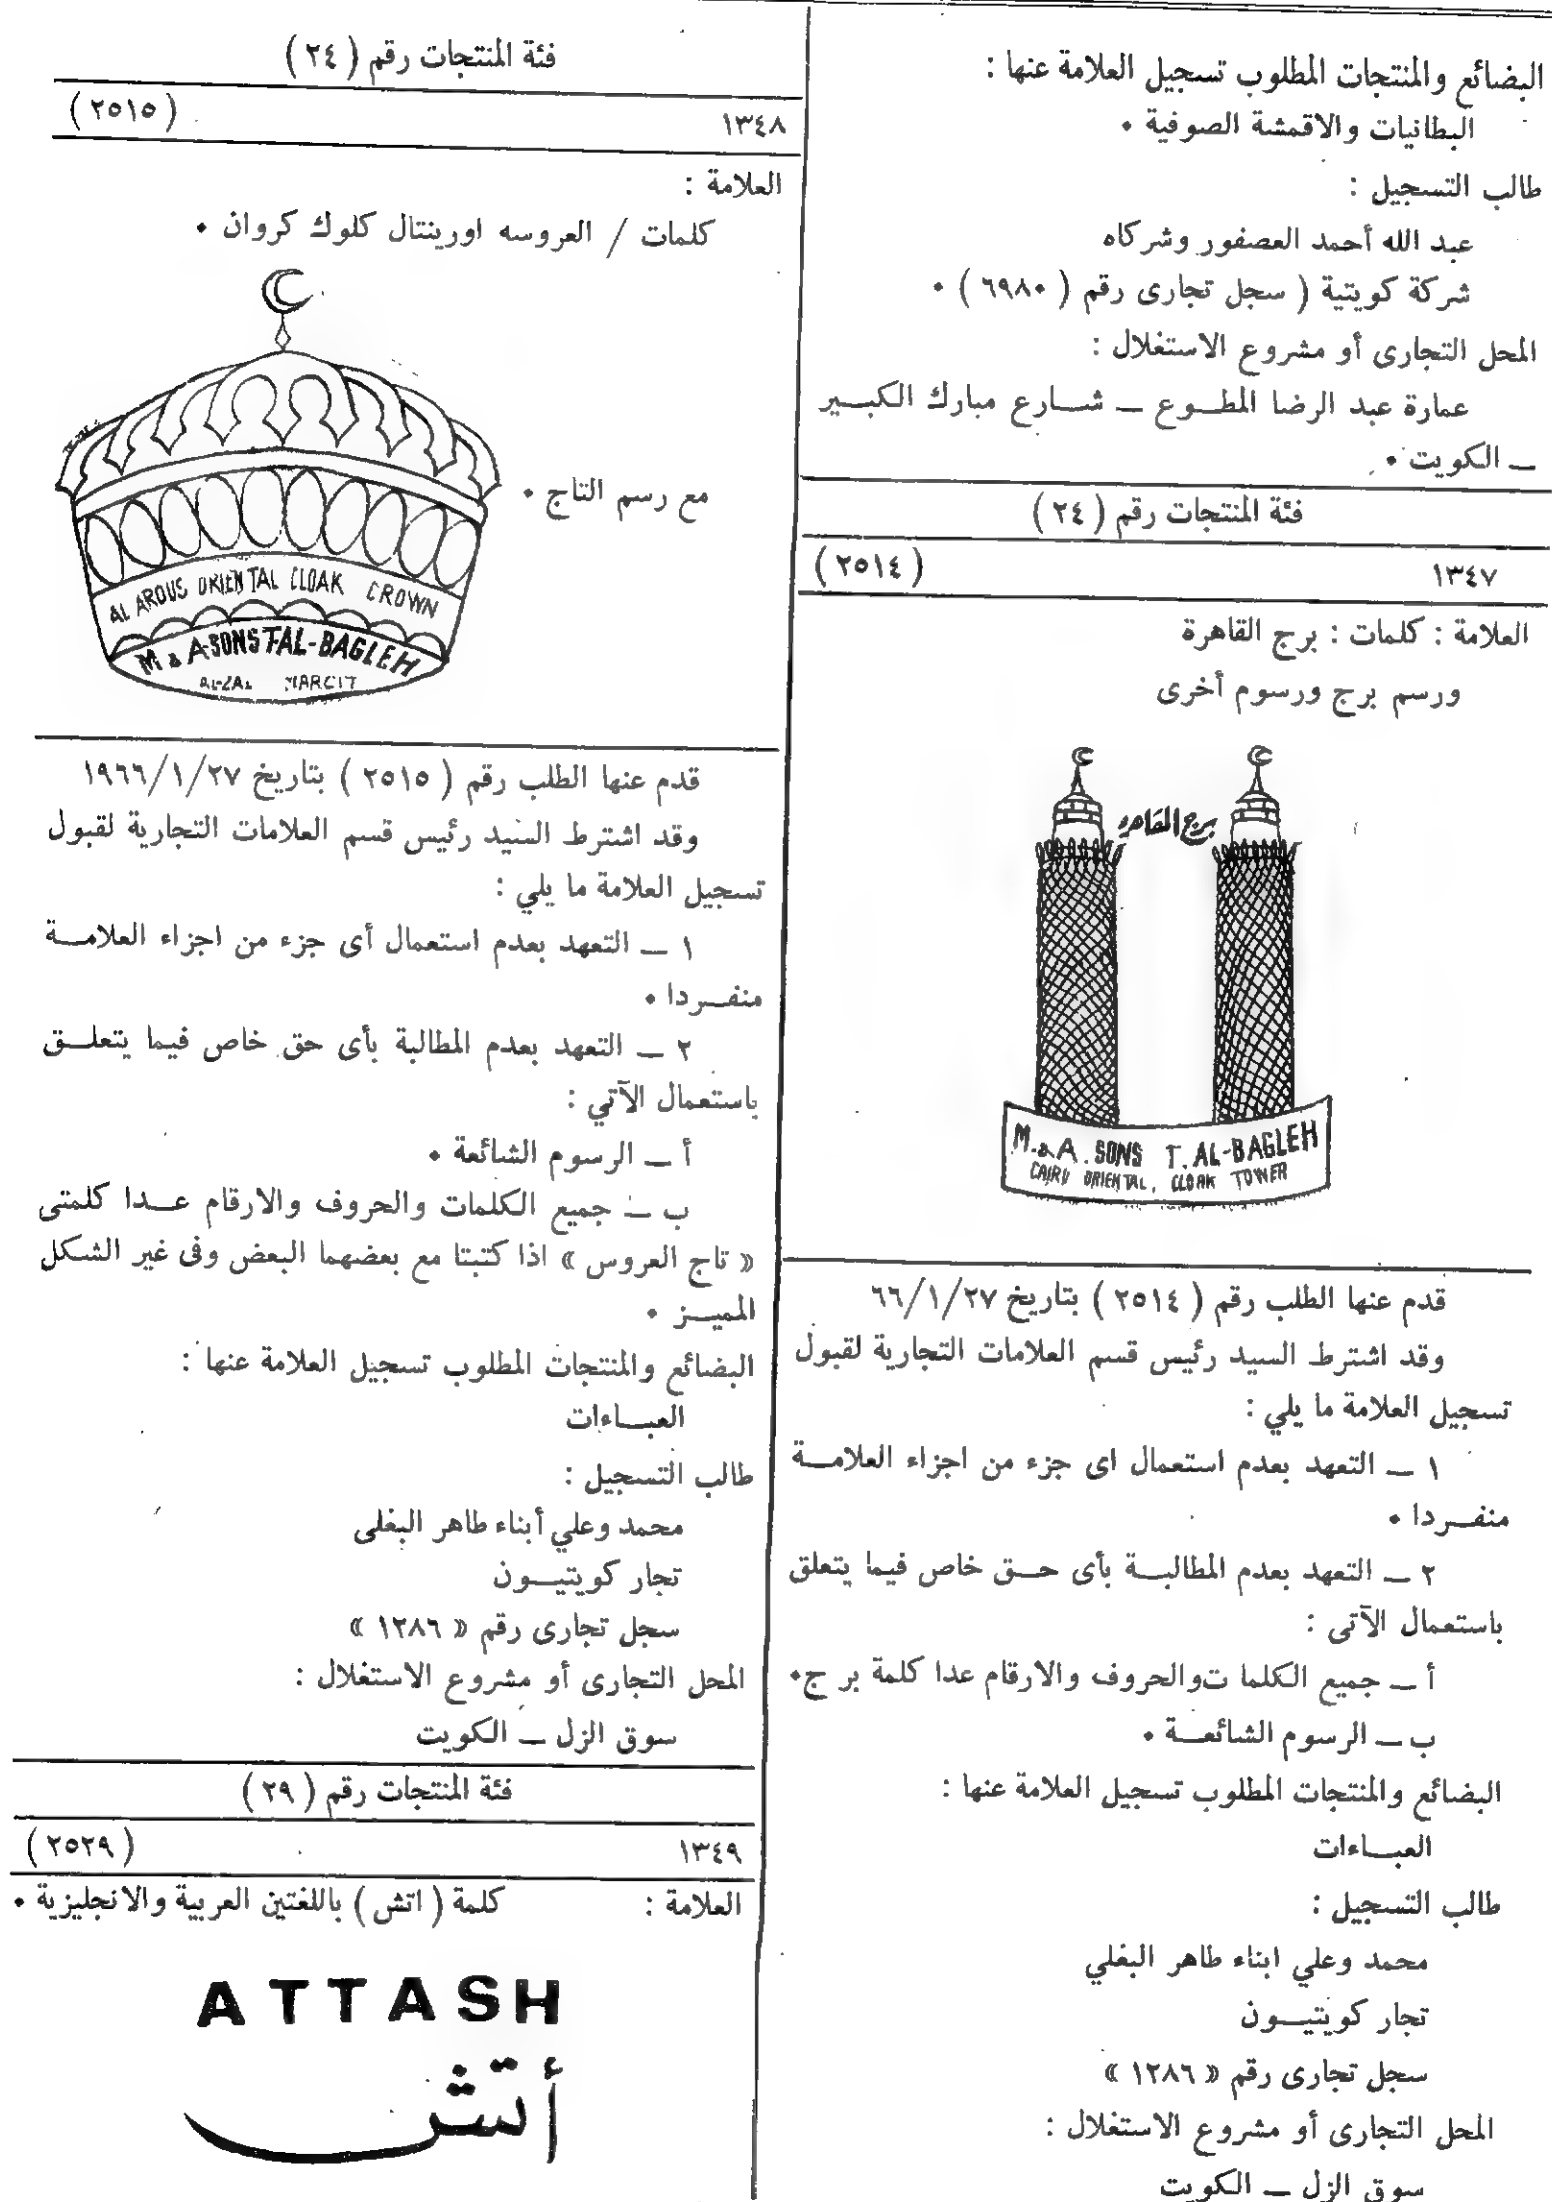 البضائع والمنتجات المطلوب تسجيل العلامة عنها :
البطانيات والاقمشة الصوفية ٠
طالب التسجيل :
عبد الله أحمد العصفور وشركاه
شركة كويتية ( سجل تجارى رقم ( ٦٩٨٠ ) ٠
المحل التجارى أو مشروع الاستغلال :
عمارة عبد الرضا المطـوع ــ شـارع مبارك الكبـير
ــ الكويت ٠
فئة المنتجات رقم ( ٢٤ )
١٣٤٧ ( ٢٥١٤ )
العلامة : كلمات : برج القاهرة
ورسم برج ورسوم أخرى
برج القاهره
M. & A. SONS T. AL-BAGLEH
CAIRO ORIENTAL, CLOAK TOWER
قدم عنها الطلب رقم ( ٢٥١٤ ) بتاريخ ٦٦/١/٢٧
وقد اشترط السيد رئيس قسم العلامات التجارية لقبول
تسجيل العلامة ما يلي :
١ ــ التعهد بعدم استعمال اى جزء من اجزاء العلامـة
منفـردا ٠
٢ ــ التعهد بعدم المطالبـة بأى حـق خاص فيما يتعلق
باستعمال الآتى :
أ ــ جميع الكلما توالحروف والارقام عدا كلمة بر ج٠
ب ــ الرسوم الشائعـة ٠
البضائع والمنتجات المطلوب تسجيل العلامة عنها :
العبـاءات
طالب التسجيل :
محمد وعلي ابناء طاهر البغلي
تجار كويتيـون
سجل تجارى رقم « ١٢٨٦ »
المحل التجارى أو مشروع الاستغلال :
سوق الزل ــ الكويت
فئة المنتجات رقم ( ٢٤ )
١٣٤٨ ( ٢٥١٥ )
العلامة :
كلمات / العروسه اورينتال كلوك كروان ٠
مع رسم التاج ٠
AL AROUS ORIENTAL CLOAK CROWN
M & A-SONS T-AL-BAGLEH
قدم عنها الطلب رقم ( ٢٥١٥ ) بتاريخ ١٩٦٦/١/٢٧
وقد اشترط السيد رئيس قسم العلامات التجارية لقبول
تسجيل العلامة ما يلي :
١ ــ التعهد بعدم استعمال أى جزء من اجزاء العلامـة
منفـردا ٠
٢ ــ التعهد بعدم المطالبة بأى حق خاص فيما يتعلـق
باستعمال الآتي :
أ ــ الرسوم الشائعة ٠
ب ــ جميع الكلمات والحروف والارقام عـدا كلمتى
« تاج العروس » اذا كتبتا مع بعضهما البعض وفى غير الشكل
المميـز ٠
البضائع والمنتجات المطلوب تسجيل العلامة عنها :
العبـاءات
طالب التسجيل :
محمد وعلي أبناء طاهر البغلى
تجار كويتيـون
سجل تجارى رقم « ١٢٨٦ »
المحل التجارى أو مشروع الاستغلال :
سوق الزل ــ الكويت
فئة المنتجات رقم ( ٢٩ )
١٣٤٩ ( ٢٥٢٩ )
العلامة : كلمة ( اتش ) باللغتين العربية والانجليزية ٠
ATTASH
أتش